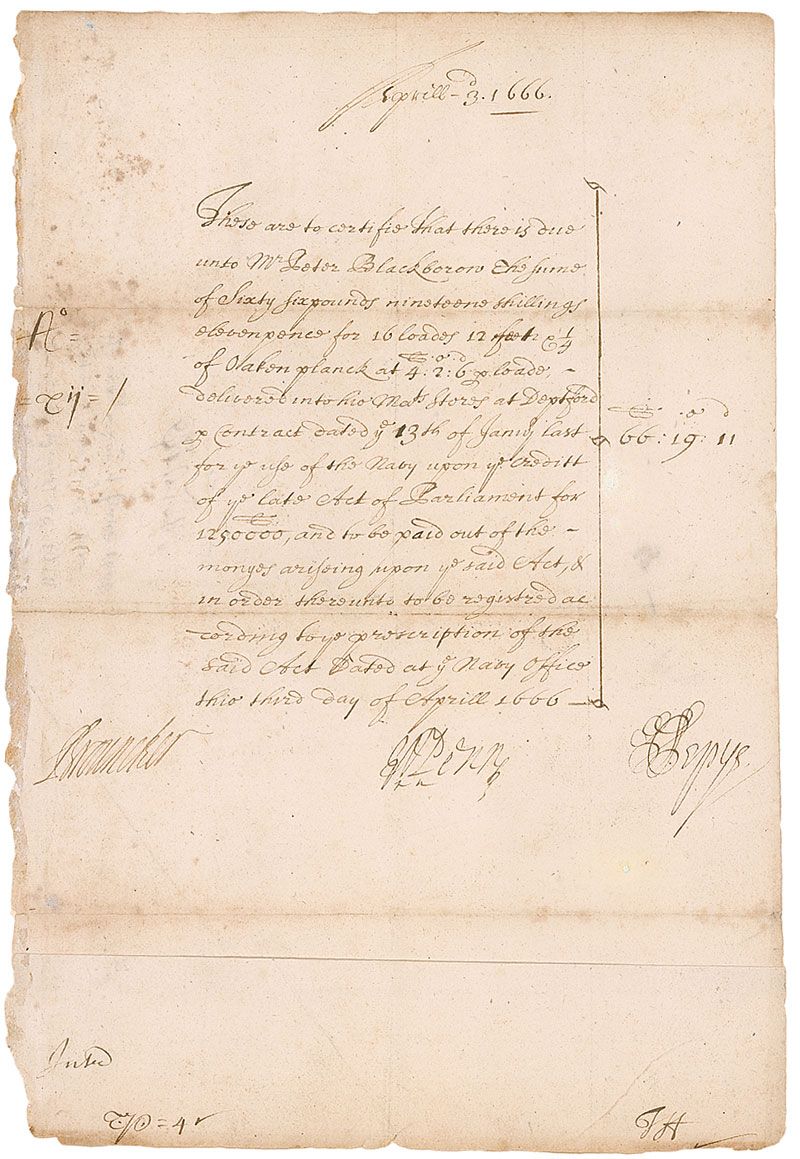 Aprill - 3d. 1666.
These are to certifie that there is due
unto Mr. Peter Blackborow the sume
of Sixty sixpounds nineteene shillings
elevenpence for 16 loades 12 feet & 1/4
of Oaken planck at £4: s2: d6 p loade, -
delivered into his Mats. Stores at Deptford
p Contract dated ye 13th of Janry last
for ye use of the Navy upon ye Creditt
of ye late Act of Parliament for
1250000£, and to be paid out of the -
monyes ariseing upon ye said Act, &
in order thereunto to be registred ac
cording to ye prescription of the
said Act Dated at ye Navy Office
this third day of Aprill 1666 -
£ s d
66: 19: 11
Ao =
= xij = /
Brouncker
W Penn
S Pepys.
= 4
TH